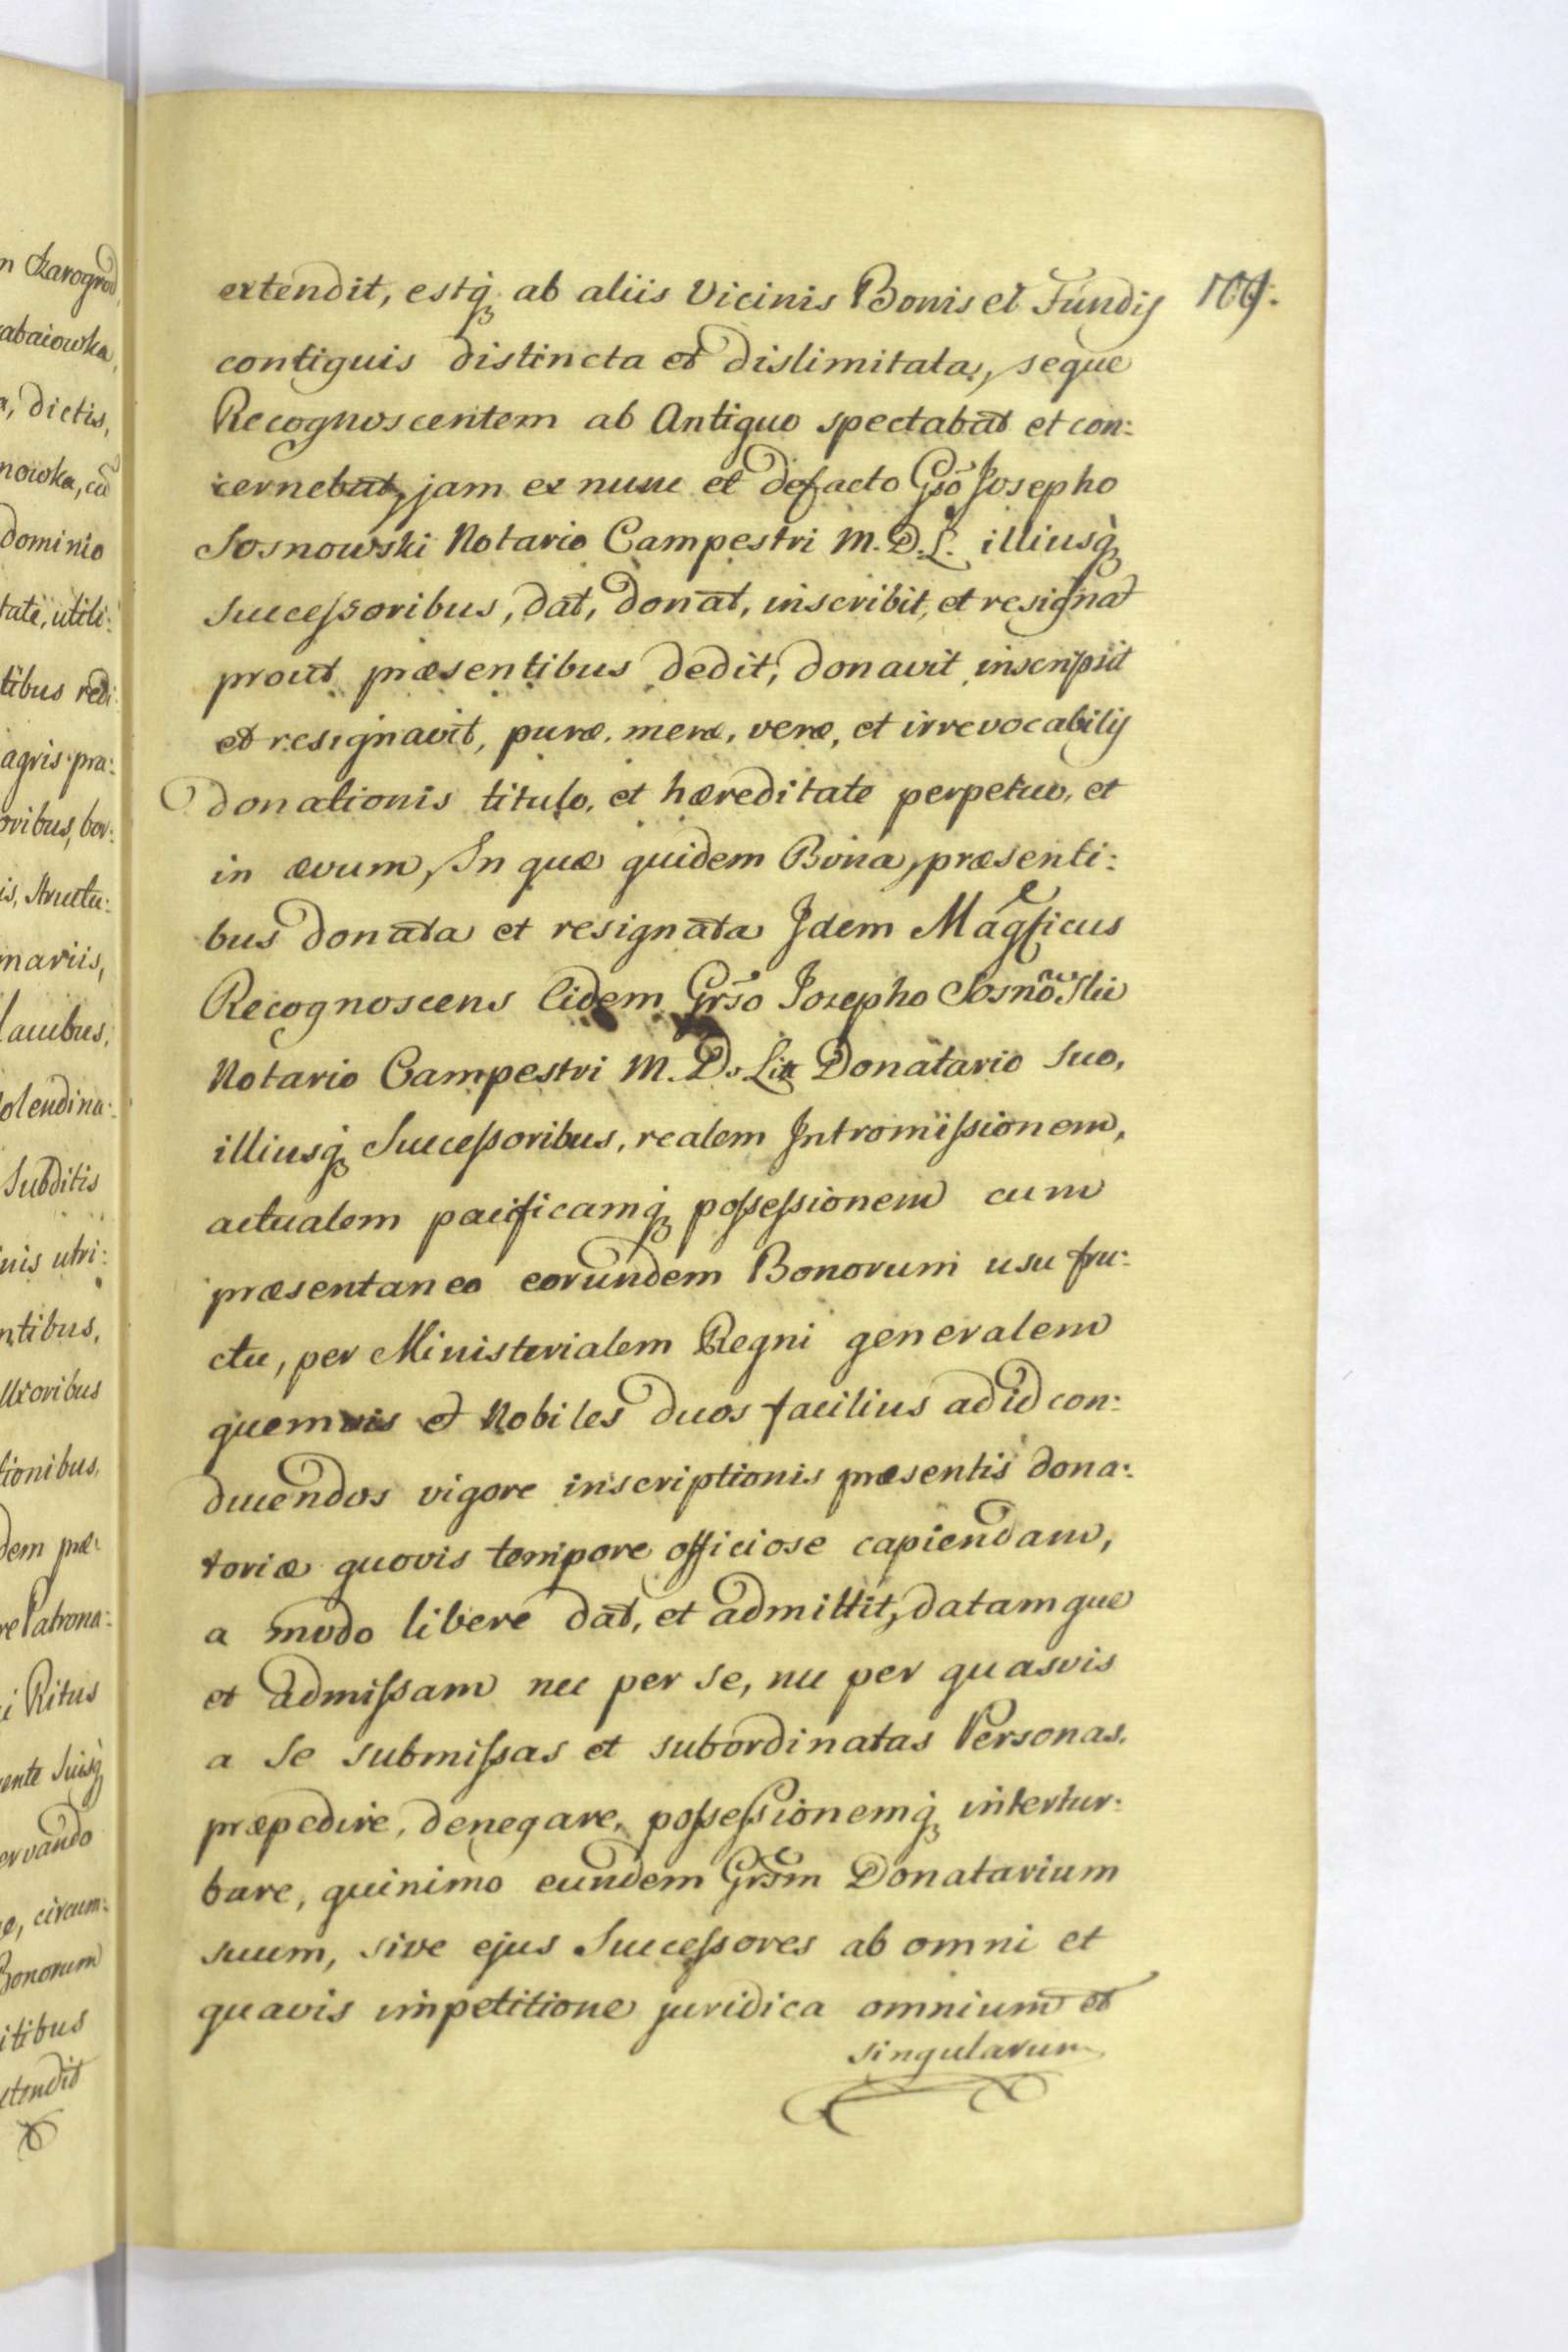 extendit, estq́ꝫ ab aliis Vicinis Bonis et Fundis
contiguis distincta et dislimitata, seque
Recognoscentem ab Antiquo spectabat et con:
cernebat, jam ex nunc et defacto Grõso Josepho
Sosnowski Notario Campestri M. D. L. illiusq́ꝫ
Succeſsoribus, dat, donat, inscribit, et resignat
prout præsentibus dedit, donavit inscripsit
et resignavit, puræ, meræ, veræ, et irrevocabilis
donationis titulo, et hæreditate perpetuo, et
in ævum, In quæ quidem Bona, præsenti:
bus donata et resignata Idem Magficus
Recognoscens Eidem Grso Josepho Sosnowskii
Notario Campestri M. D. Litt Donatario Suo,
illiusq́ꝫ Succeſsoribus, realem Intromiſsionem,
actualem pacificamq́ꝫ poſseſsionem cum
præsentaneo eorundem Bonorum usu fru:
ctu, per Ministerialem Regni generalem
quemvis et Nobiles duos facilius ad id con:
ducendos vigore inscriptionis præsentis dona:
toriæ quovis tempore officiose capiendam,
a modo libere dat, et admittit, datamque
et admiſsam nec per se, nec per quasvis
a Se submiſsas et subordinatas Personas,
præpedire, denegare, poſseſsionemq́ꝫ intertur:
bare, quinimo eundem Grsm Donatarium
suum, sive ejus Succeſsores ab omni et
quavis impetitione juridica omnium et
singularum
n Czarogrod,
abaiowka,
a, dictis,
nowka, cũ
dominio
tate, utili:
tibus redi:
agris pra:
oribus, bor:
is, structu:
mariis,
lacubus,
olendina:
Subditis
nis utri:
ntibus,
tionibus,
dem præ:
re Patrona:
i Ritus
ente Suisq́ꝫ
ervando
e, circum:
Bonorum
itibus
xtendit